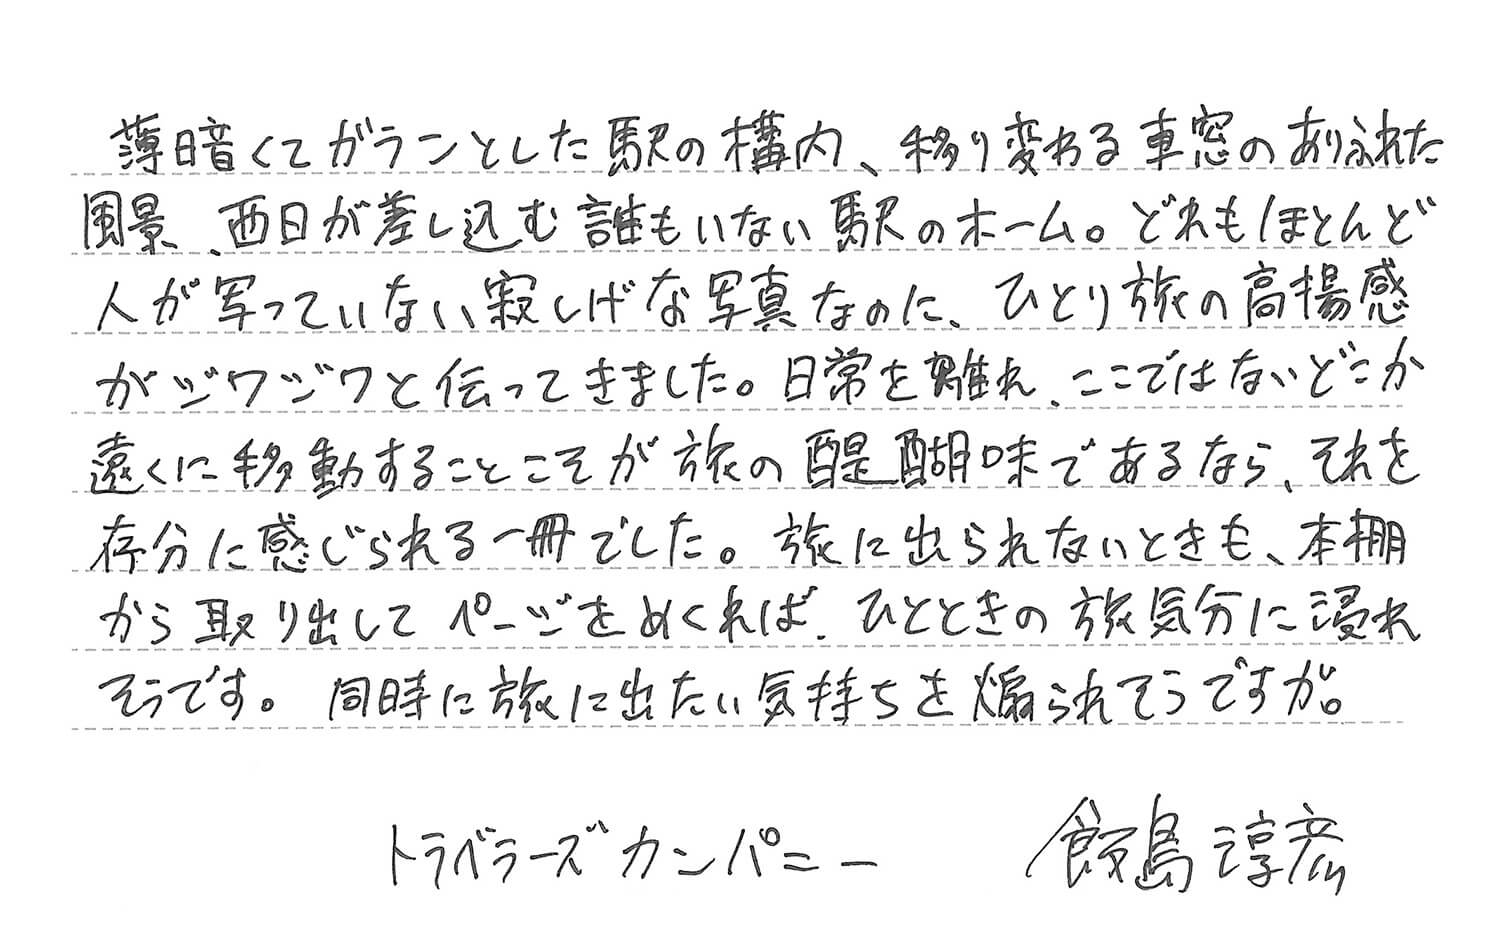 薄暗くてガランとした駅の構内、移り変わる車窓のありふれた
風景、西日が差し込む誰もいない駅のホーム。どれもほとんど
人が写っていない寂しげな写真なのに、ひとり旅の高揚感
がジワジワと伝ってきました。日常を離れ、ここではないどこか
遠くに移動することこそが旅の醍醐味であるなら、それを
存分に感じられる一冊でした。旅に出られないときも、本棚
から取り出してページをめくれば、ひとときの旅気分に浸れ
そうです。同時に旅に出たい気持ちを煽られそうですが。
トラベラーズカンパニー 飯島淳彦